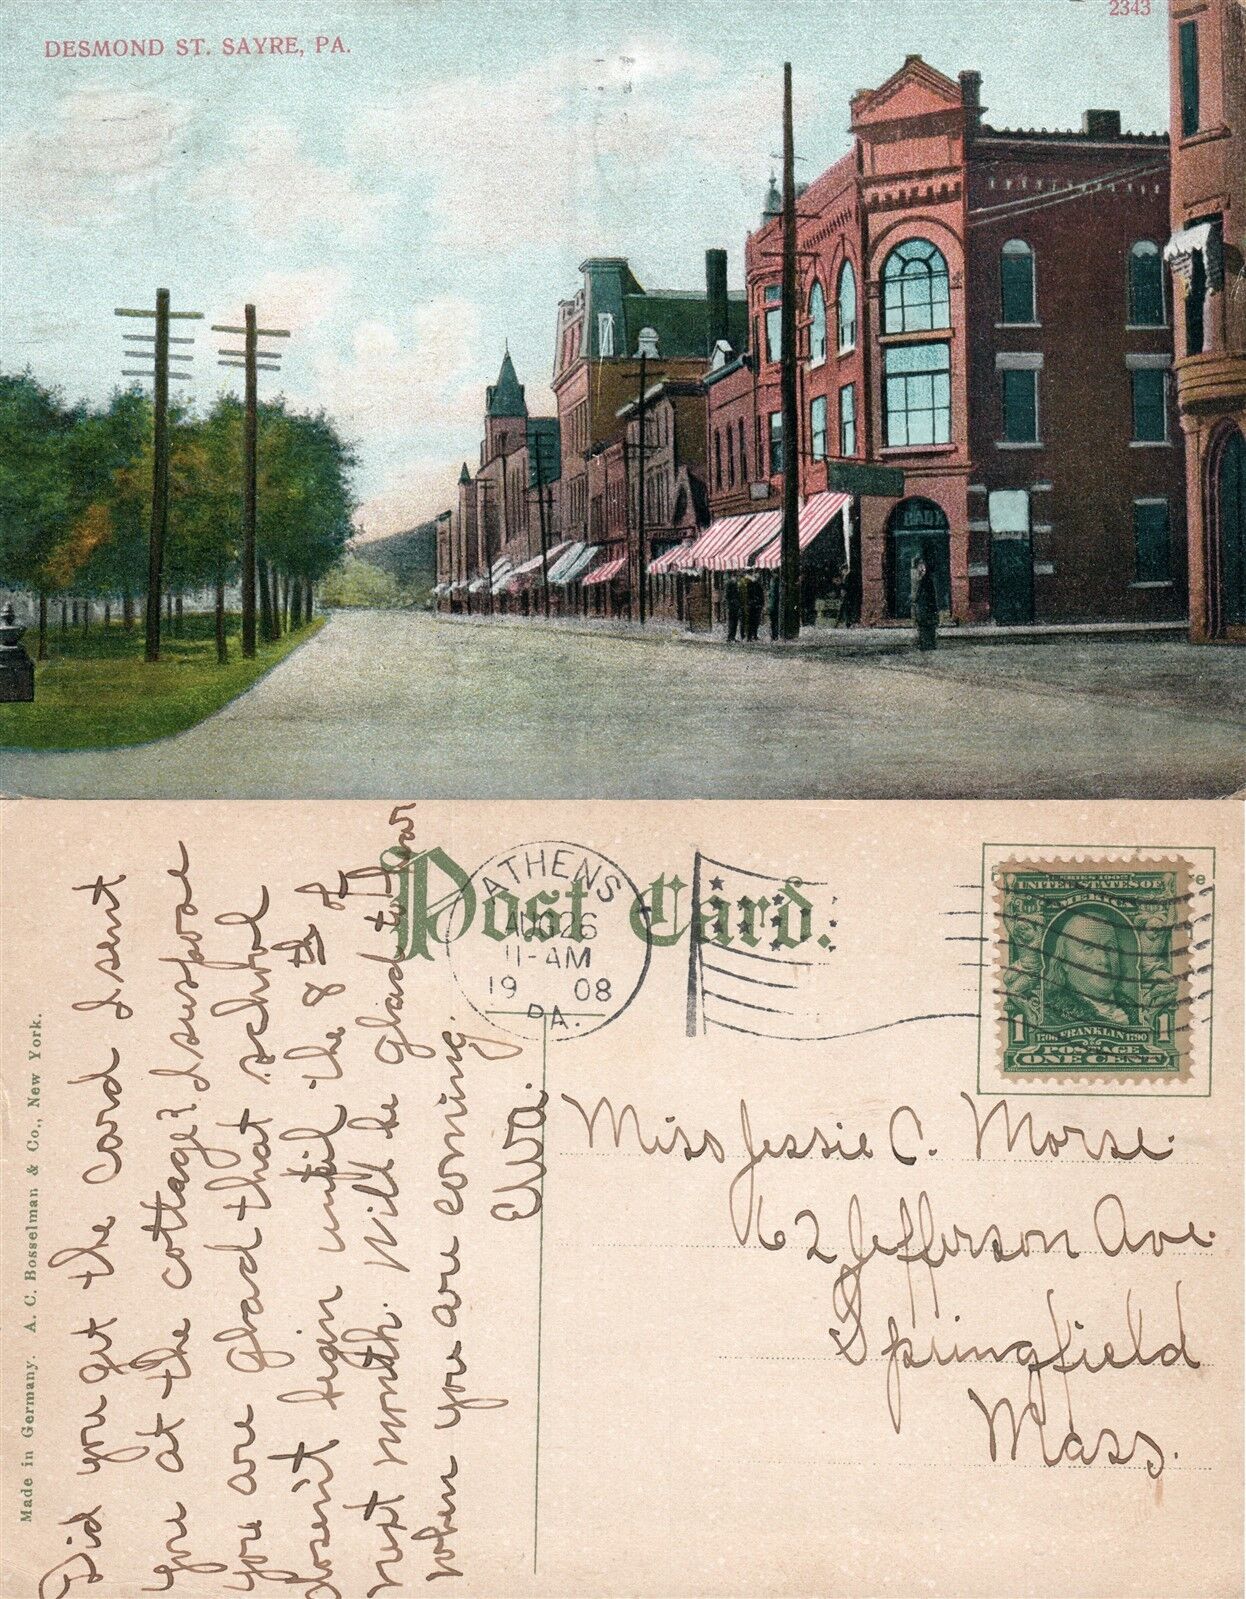 DESMOND ST. SAYRE, PA.
2343
BANK
Post Card.
ATHENS
AUG 26
11-AM
19 08
PA.
SERIES 1902
UNITED STATES OF
AMERICA
1 1706 FRANKLIN 1790 1
POSTAGE
ONE CENT
Made in Germany. A. C. Bosselman & Co., New York.
Did you get the card I sent
you at the cottage? I suspose
you are glad that school
dosen't begin until the 8th of
next month. Will be glad to hear
when you are coming.
Elva.
Miss Jessie C. Morse.
62 Jefferson Ave.
Springfield
Mass.